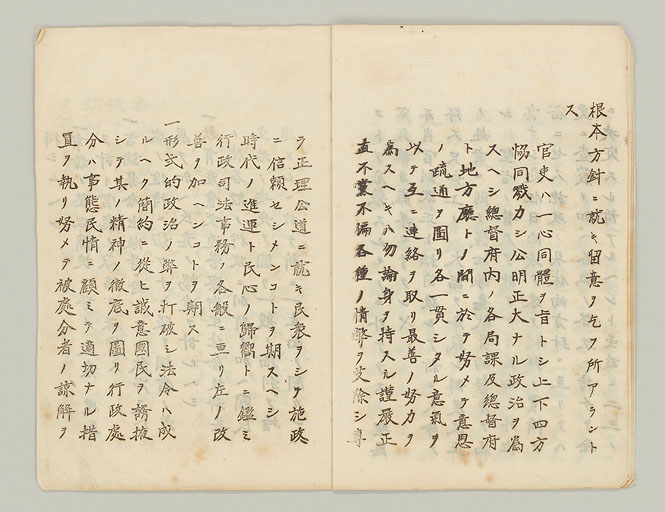 根本方針ニ就キ留意ヲ乞フ所アラント
ス
官吏ハ一心同體ヲ旨トシ上下四方
協同戮力シ公明正大ナル政治ヲ爲
スヘシ總督府内ノ各局課及總督府
ト地方廳トノ間ニ於テ努メテ意思
ノ疏通ヲ圖リ各一貫シタル意氣ヲ
以テ互ニ連絡ヲ取リ最善ノ努力ヲ
爲スヘキハ勿論身ヲ持スル謹嚴正
直不黨不偏各種ノ情弊ヲ艾除シ專
ラ正理公道ニ就キ民衆ヲシテ施政
ニ信頼セシメンコトヲ期スヘシ
時代ノ進運ト民心ノ歸嚮トニ鑑ミ
行政司法事務ノ各般ニ亘リ左ノ改
善ヲ加ヘンコトヲ期ス
一形式的政治ノ弊ヲ打破シ法令ハ成
ルヘク簡約ニ從ヒ誠意國民ヲ誘掖
シテ其ノ精神ノ徹底ヲ圖リ行政處
分ハ事態民情ニ顧ミテ適切ナル措
置ヲ執リ努メテ被處分者ノ諒解ヲ